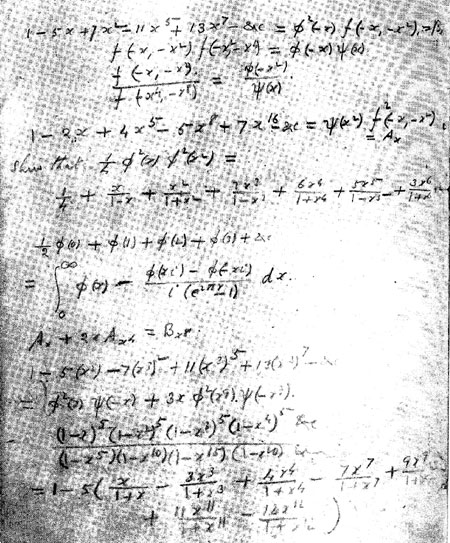 1 - 5x + 7x² - 11x⁵ + 13x⁷ - &c = φ²(-x) f(-x, -x²) = B
f(-x, -x²) f(-x², -x⁴) = φ(-x) ψ(x)
f(-x, -x²) / f(-x⁴, -x⁸) = φ(-x²) / ψ(x)
1 - 2x + 4x⁵ - 5x⁸ + 7x¹⁶ - &c = ψ(x²) f²(-x, -x²)
= Aₓ
Show that ¼ φ²(x) φ²(x²) =
¼ + x/1-x + x²/1+x² + 3x³/1-x³ + 6x⁴/1+x⁴ + 5x⁵/1-x⁵ + 3x⁶/1+x
½ φ(0) + φ(1) + φ(2) + φ(3) + &c
= ∫₀^∞ φ(x) - φ(xi) - φ(-xi) / i (e^{2πx} - 1) dx.
Aₓ + 2x Aₓ₄ = Bₓ₈
1 - 5(x³) - 7(x³)² + 11(x³)⁵ + 13(x³)⁷ - &c
= φ²(x) ψ(-x) + 3x φ²(x⁹) ψ(-x⁹).
(1-x)⁵(1-x²)⁵(1-x³)⁵(1-x⁴)⁵ &c / (1-x⁵)(1-x¹⁰)(1-x¹⁵)(1-x²⁰) &c
= 1 - 5( x/1+x - 3x³/1+x³ + 4x⁴/1+x⁴ - 7x⁷/1+x⁷ + 9x⁹/1+x
+ 11x¹¹/1+x¹¹ - 12x¹²/1+x¹² )